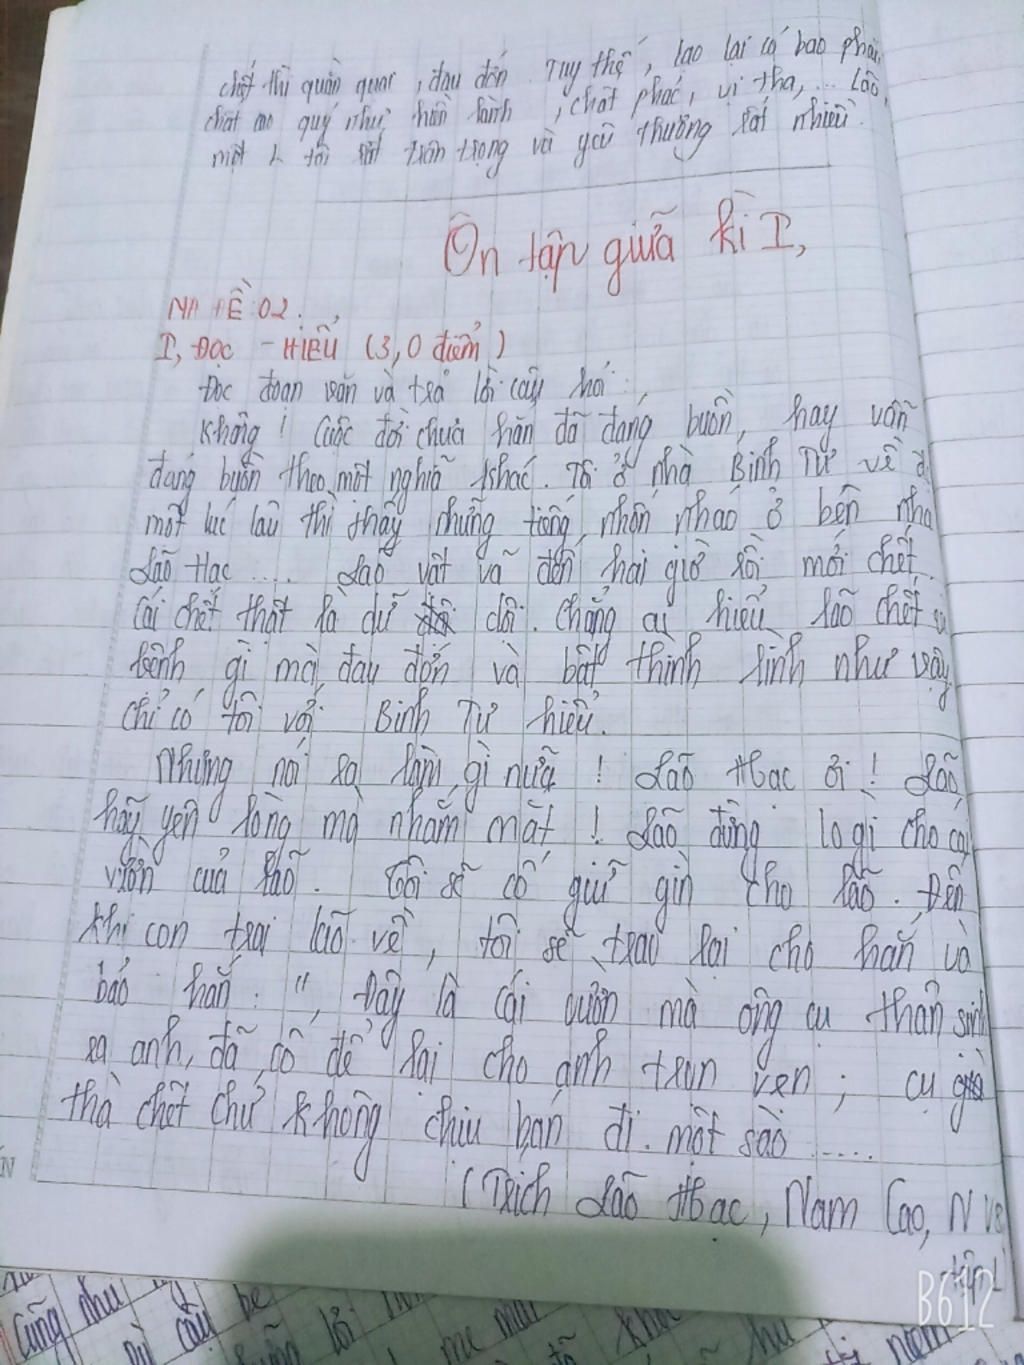 chết thì quằn quại, đau đớn. Tuy thế, lão lại có bao phẩm
chất cao quý như hiền lành, chất phác, vị tha,... Lão,
một tôi rất trân trọng và yêu thương rất nhiều.
Ôn tập giữa kì I,
ĐỀ 02.
I, ĐỌC - HIỂU (3,0 điểm)
Đọc đoạn văn và trả lời câu hỏi:
Không! Cuộc đời chưa hẳn đã đáng buồn, hay vẫn
đáng buồn theo một nghĩa khác. Tôi ở nhà Binh Tư về đ
một lúc lâu thì thấy những tiếng nhốn nháo ở bên nhà
Lão Hạc .... Lão vật vã đến hai giờ rồi mới chết.
Cái chết thật là dữ dội. Chẳng ai hiểu lão chết vì
bệnh gì mà đau đớn và bất thình lình như vậy
chỉ có tôi với Binh Tư hiểu.
Nhưng nói ra làm gì nữa! Lão Hạc ơi! Lão
hãy yên lòng mà nhắm mắt! Lão đừng lo gì cho cái
vườn của lão. Tôi sẽ cố giữ gìn cho lão. Đến
khi con trai lão về, tôi sẽ trao lại cho hắn và
bảo hắn: " Đây là cái vườn mà ông cụ thân sinh
ra anh, đã cố để lại cho anh trọn vẹn; cụ
thà chết chứ không chịu bán đi một sào .....
(Trích Lão Hạc, Nam Cao, N V8
tập 1
Cũng như
câu bé
B612